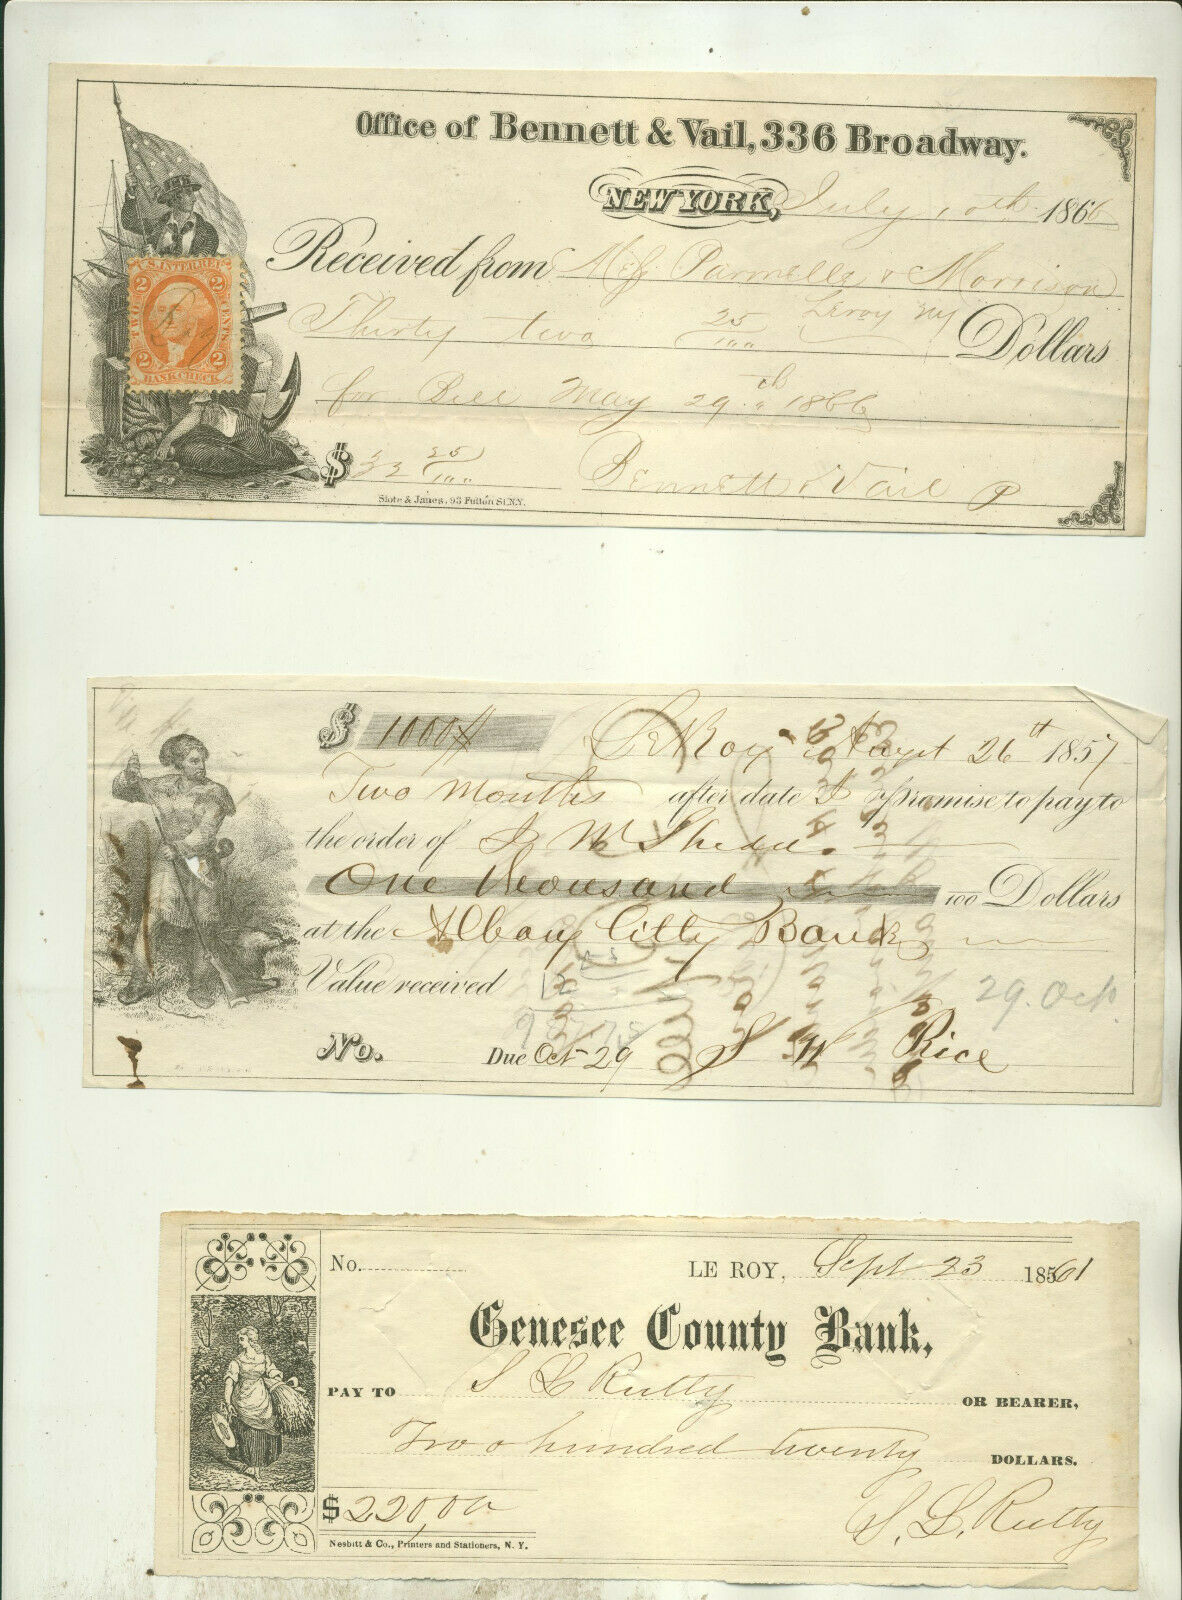 Office of Bennett & Vail, 336 Broadway.
NEW YORK, July 10th 1866
U.S. INTER. REV.
2 2
TWO CENTS
2 2
BANK CHECK
Received from Parmelee & Morrison
Leroy NY
Thirty two 25/100 Dollars
for Bill May 29th 1866
$ 32 25/100 Bennett & Vail
Slote & Janes, 93 Fulton St. N.Y.
$ 1000 LeRoy August 26th 1857
Two Months after date I promise to pay to
the order of
One thousand 100 Dollars
at the Albany City Bank
Value received 29. Oct.
No. Due Oct 29 S W Rice
No. LE ROY, Sept 23 18561
Genesee County Bank,
PAY TO S L Rutty OR BEARER,
Two hundred twenty DOLLARS.
$ 220,00 S. L. Rutty
Nesbitt & Co., Printers and Stationers, N. Y.